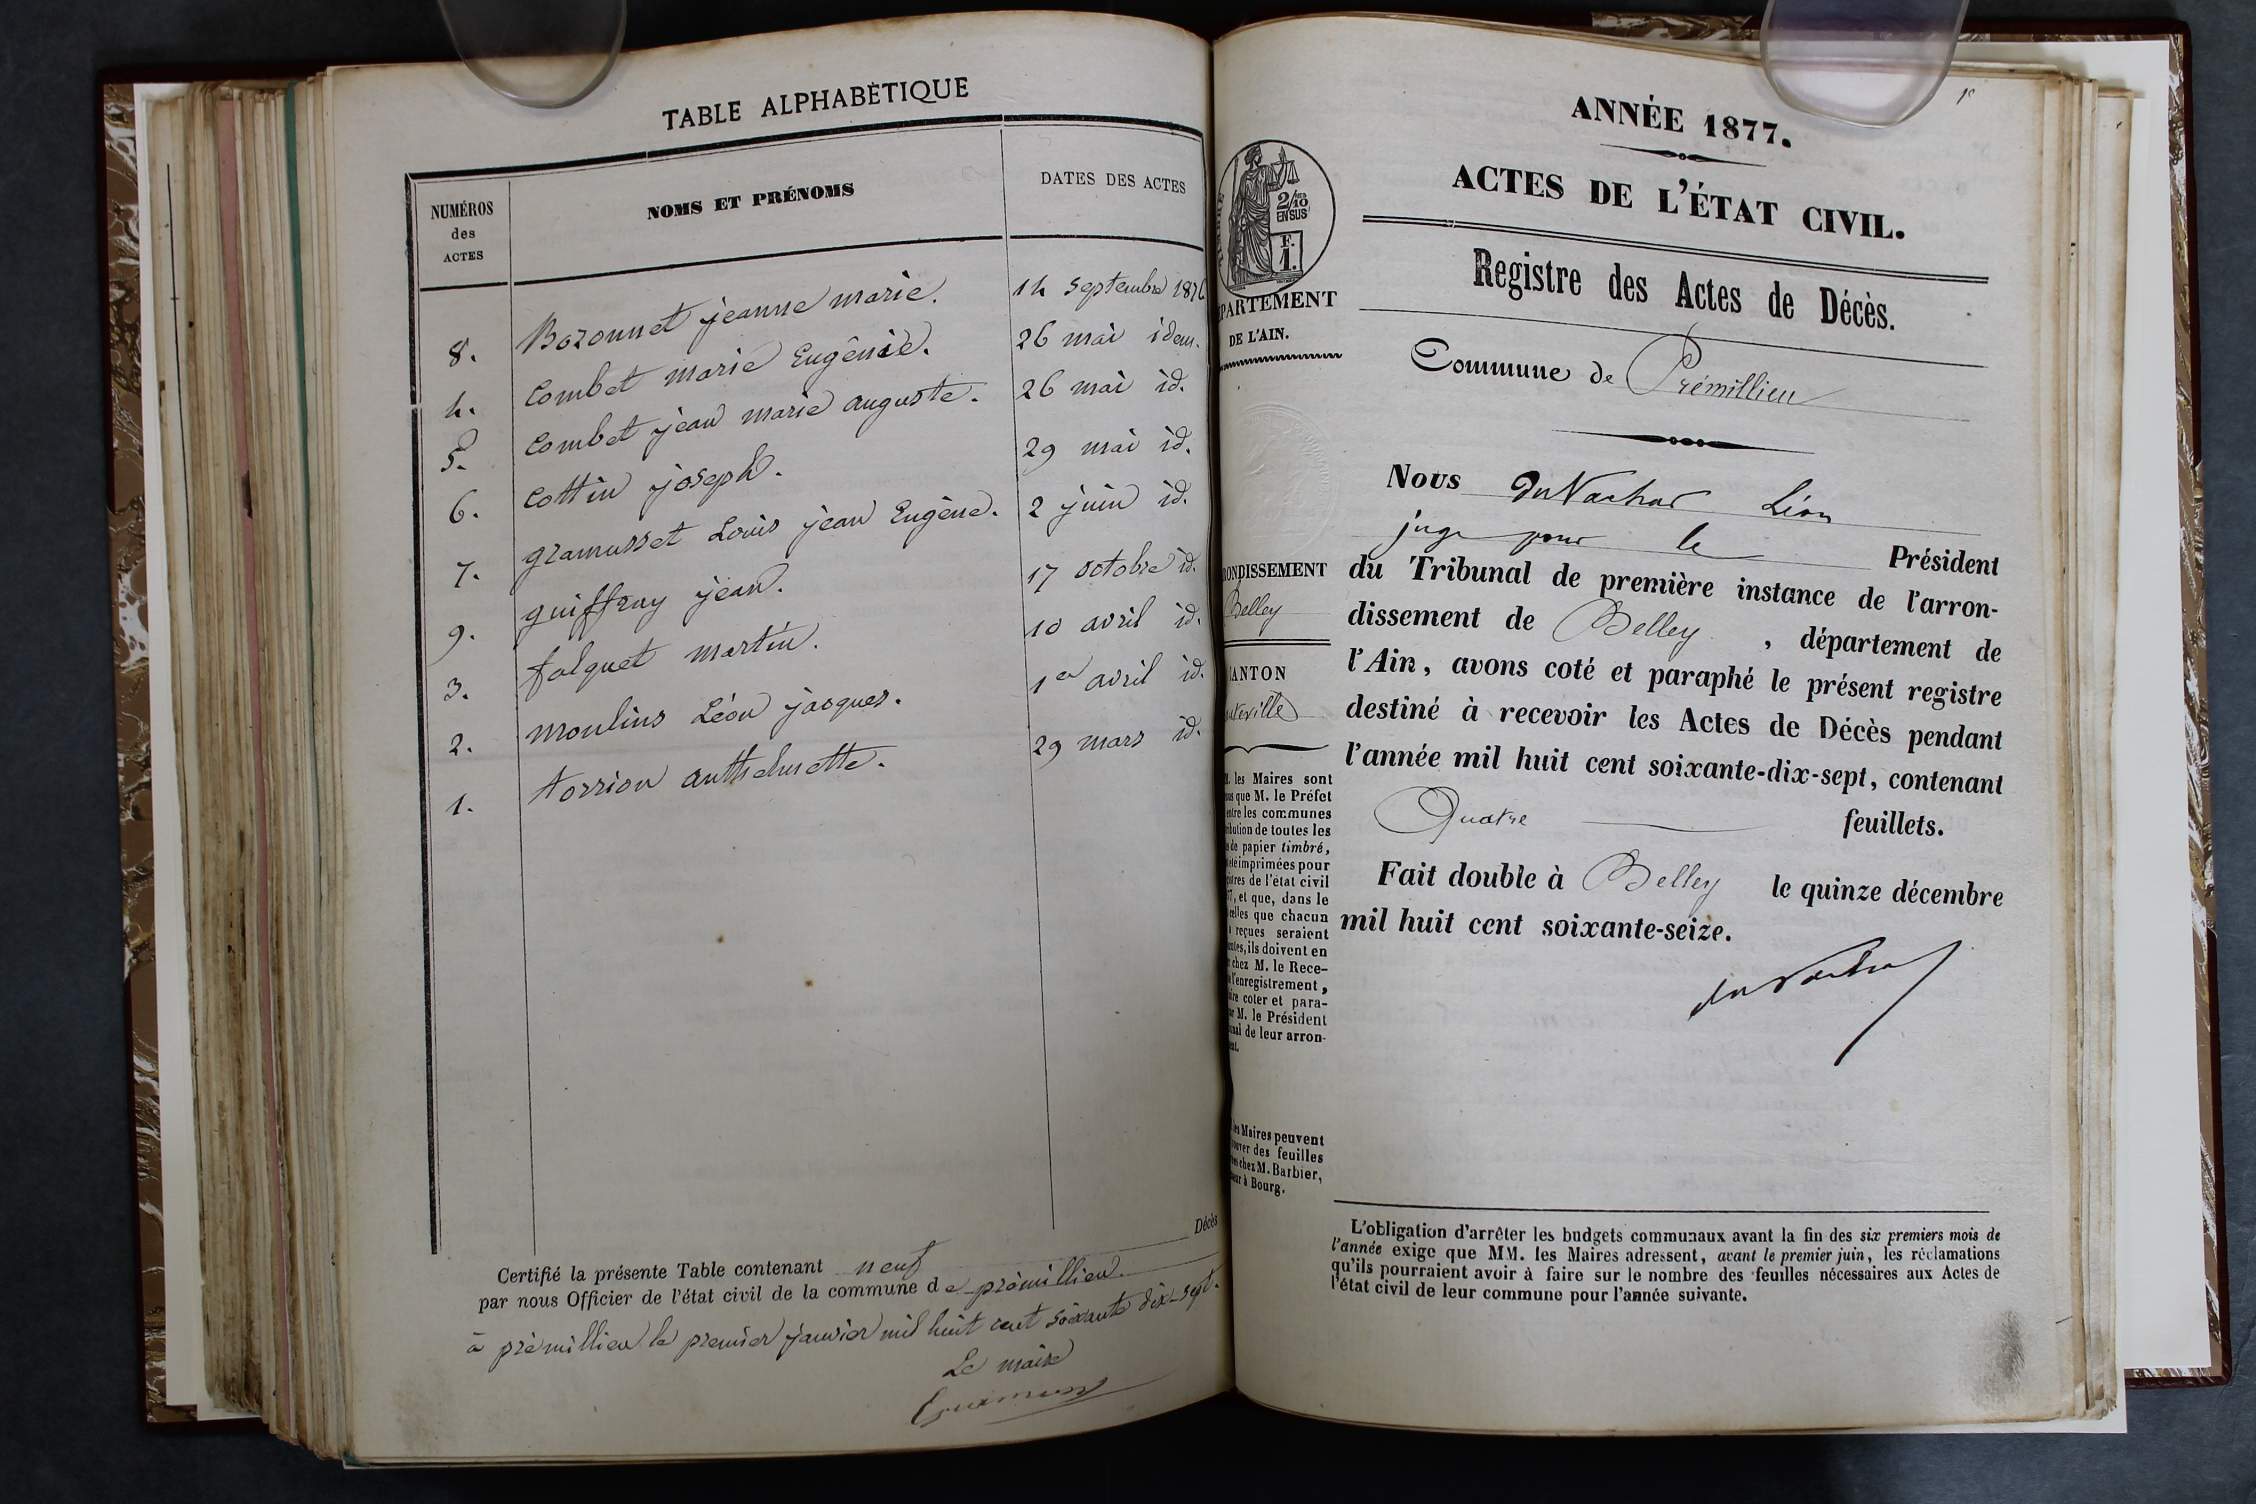 TABLE ALPHABÈTIQUE
NUMÉROS
des
ACTES
NOMS ET PRÉNOMS
DATES DES ACTES
8. Bozonnet jeanne marie. 14 septembre 1876
4. Combet marie Eugênie. 26 mai idem.
5. Combet jean marie auguste. 26 mai id.
6. Cottin joseph. 29 mai id.
7. gramusset Louis jean Eugène. 2 juin id.
9. guiffray jean. 17 octobre id.
3. falquet martin. 10 avril id.
2. moulins Léon jacques. 1er avril id.
1. torrion anthelmette. 29 mars id.
Certifié la présente Table contenant neuf Décès
par nous Officier de l'état civil de la commune de prémillieu.
à prémillieu le premier janvier mil huit cent soixante dix-sept.
Le maire
ANNÉE 1877.
ACTES DE L'ÉTAT CIVIL.
Registre des Actes de Décès.
Commune de Prémillieu
2/10
EN SUS
F.
1.
PARTEMENT
DE L'AIN.
ONDISSEMENT
Belley
ANTON
uteville
les Maires sont
que M. le Préfet
entre les communes
ribution de toutes les
de papier timbré,
été imprimées pour
de l'état civil
, et que, dans le
celles que chacun
reçues seraient
, ils doivent en
chez M. le Rece-
l'enregistrement,
coter et para-
M. le Président
de leur arron-
les Maires peuvent
des feuilles
chez M. Barbier,
à Bourg.
Nous Léon
juge pour le Président
du Tribunal de première instance de l'arron-
dissement de Belley, département de
l'Ain, avons coté et paraphé le présent registre
destiné à recevoir les Actes de Décès pendant
l'année mil huit cent soixante-dix-sept, contenant
Quatre feuillets.
Fait double à Belley le quinze décembre
mil huit cent soixante-seize.
L'obligation d'arrêter les budgets communaux avant la fin des six premiers mois de
l'année exige que MM. les Maires adressent, avant le premier juin, les réclamations
qu'ils pourraient avoir à faire sur le nombre des feuilles nécessaires aux Actes de
l'état civil de leur commune pour l'année suivante.